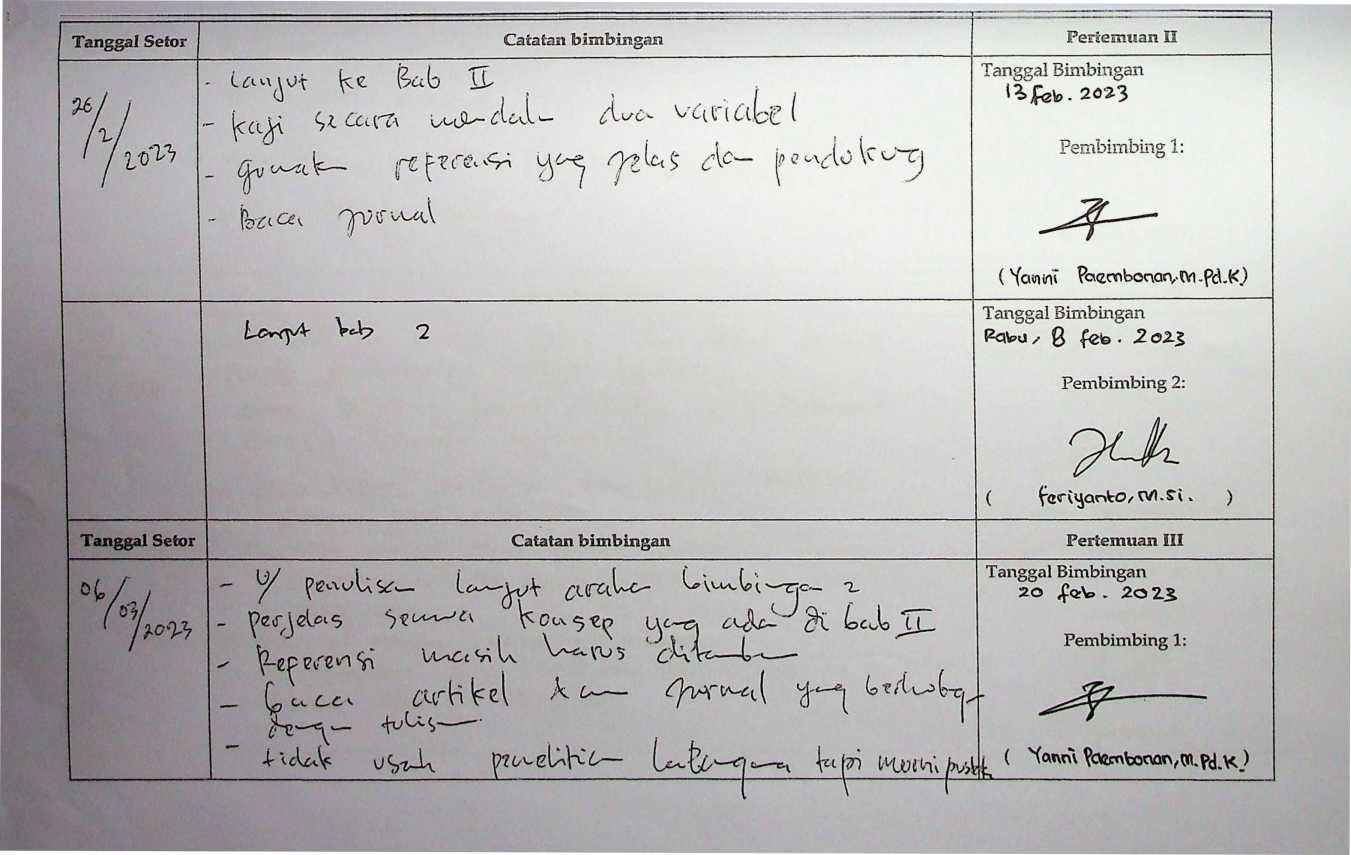 Tanggal Setor Catatan bimbingan Pertemuan II
26/2/2023
- Lanjut ke Bab II
- kaji secara mendalam dua variabel
- gunakan referensi yang jelas dan pendukung
- Baca jurnal
Tanggal Bimbingan
13 Feb. 2023
Pembimbing 1:
(Yanni Paembonan, M.Pd.K)
Lanjut bab 2
Tanggal Bimbingan
Rabu, 8 feb. 2023
Pembimbing 2:
( feriyanto, M.Si. )
Tanggal Setor Catatan bimbingan Pertemuan III
06/03/2023
- U/ penulisan lanjut arahan bimbingan 2
- perjelas semua konsep yang ada di bab II
- Referensi masih harus ditambah
- baca artikel dan jurnal yang berhubungan
dengan tulisan.
- tidak usah penelitian lapangan tapi murni pustak
Tanggal Bimbingan
20 feb. 2023
Pembimbing 1:
( Yanni Paembonan, M.Pd.K)